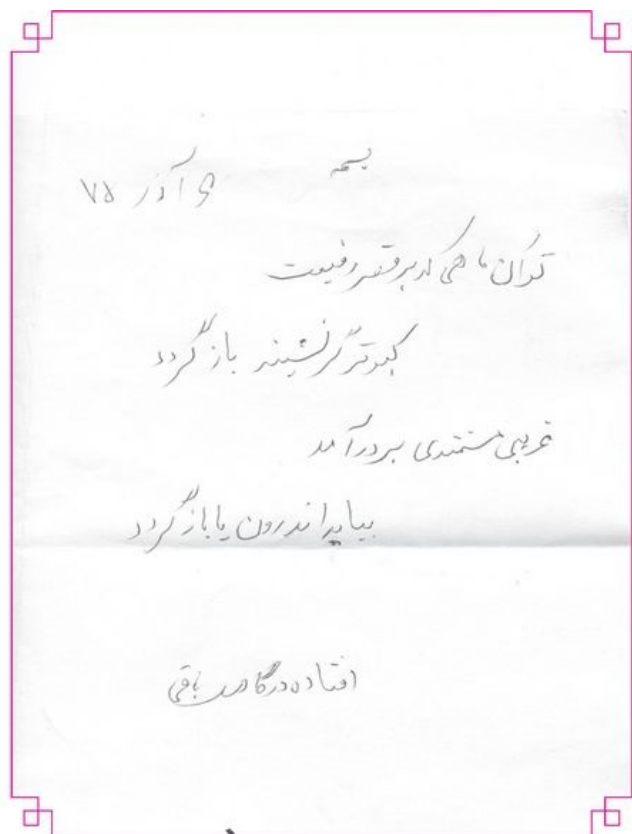 بسمه
۶ آذر ۷۵
تو آن شاهی که بر قصر رفیعت
کبوتر گر نشیند باز گردد
غریبی مستمندی بر در آمد
بیاید اندرون یا باز گردد
افتاده درگاهت باقی